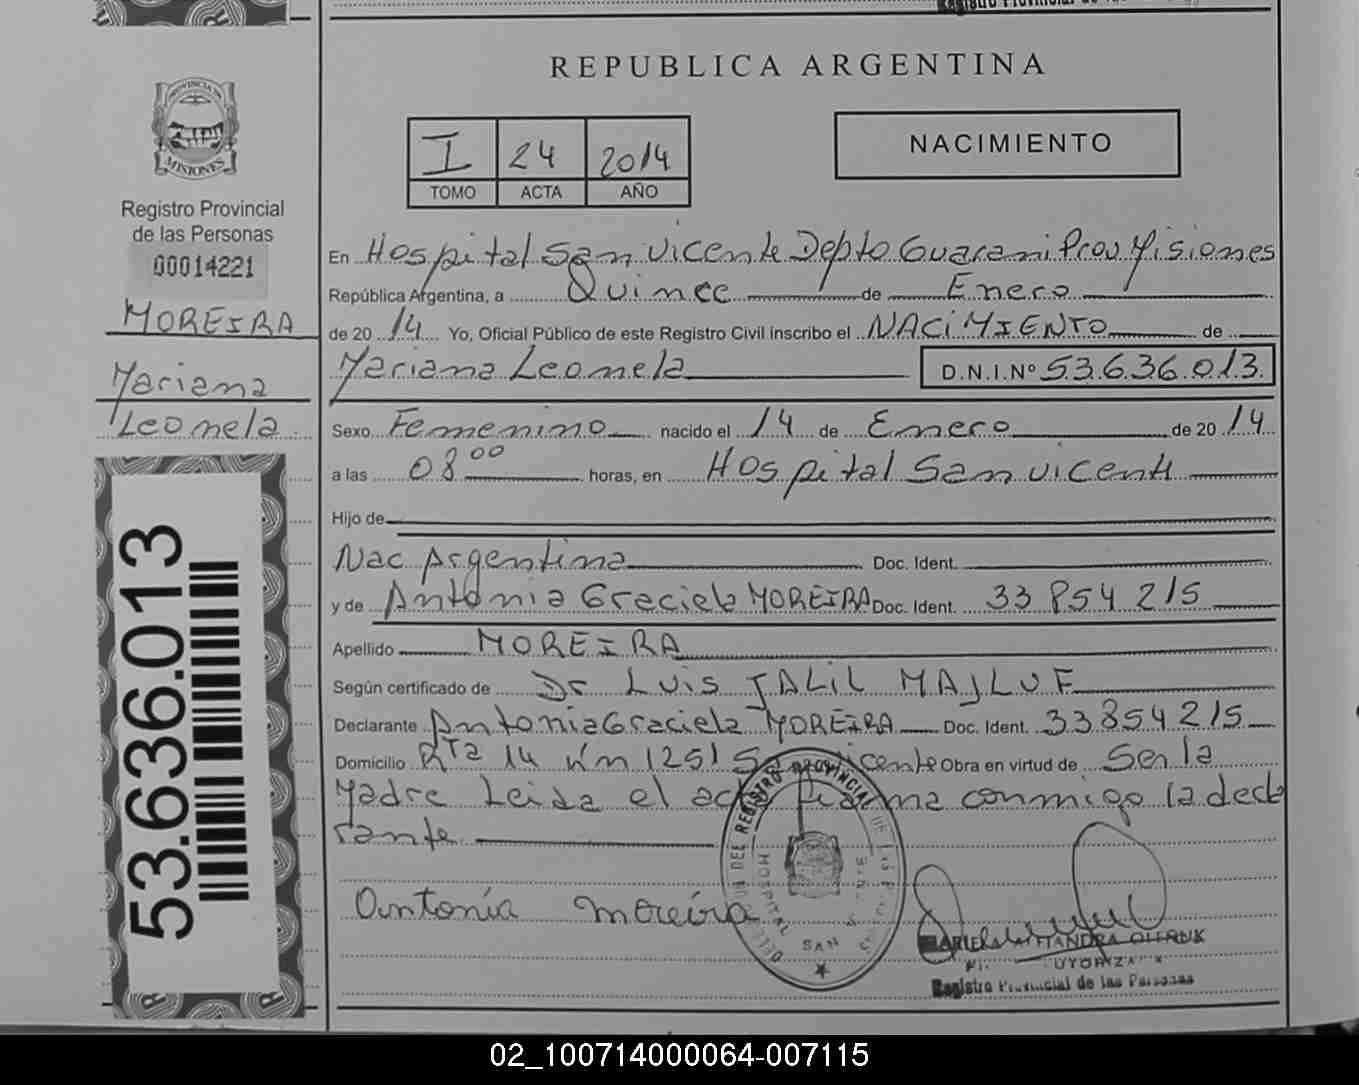 REPUBLICA ARGENTINA
PROVINCIA DE
MISIONES
Registro Provincial
de las Personas
00014221
MOREIRA
Mariana
Leonela
53.636.013
I 24 2014
TOMO ACTA AÑO
NACIMIENTO
En Hospital San Vicente Depto Guarani Prov Misiones
República Argentina, a Quince de Enero
de 20 14 Yo, Oficial Público de este Registro Civil inscribo el NACIMIENTO de
Mariana Leonela D.N.I.Nº 53.636.013
Sexo Femenino nacido el 14 de Enero de 20 14
a las 08 00 horas, en Hospital San Vicente
Hijo de
Nac Argentina Doc. Ident.
y de Antonia Graciela MOREIRA Doc. Ident. 33 854 215
Apellido MOREIRA
Según certificado de Dr Luis JALIL MAJLUF
Declarante Antonia Graciela MOREIRA Doc. Ident. 33854215
Domicilio Rta 14 Km 1251 San Vicente Obra en virtud de Ser la
Madre Leida el acta firma conmigo la decla
rante
Antonia Moreira
REGISTRO PROVINCIAL DE LAS
HOSPITAL SAN VICENTE
Registro Provincial de las Personas
02_100714000064-007115